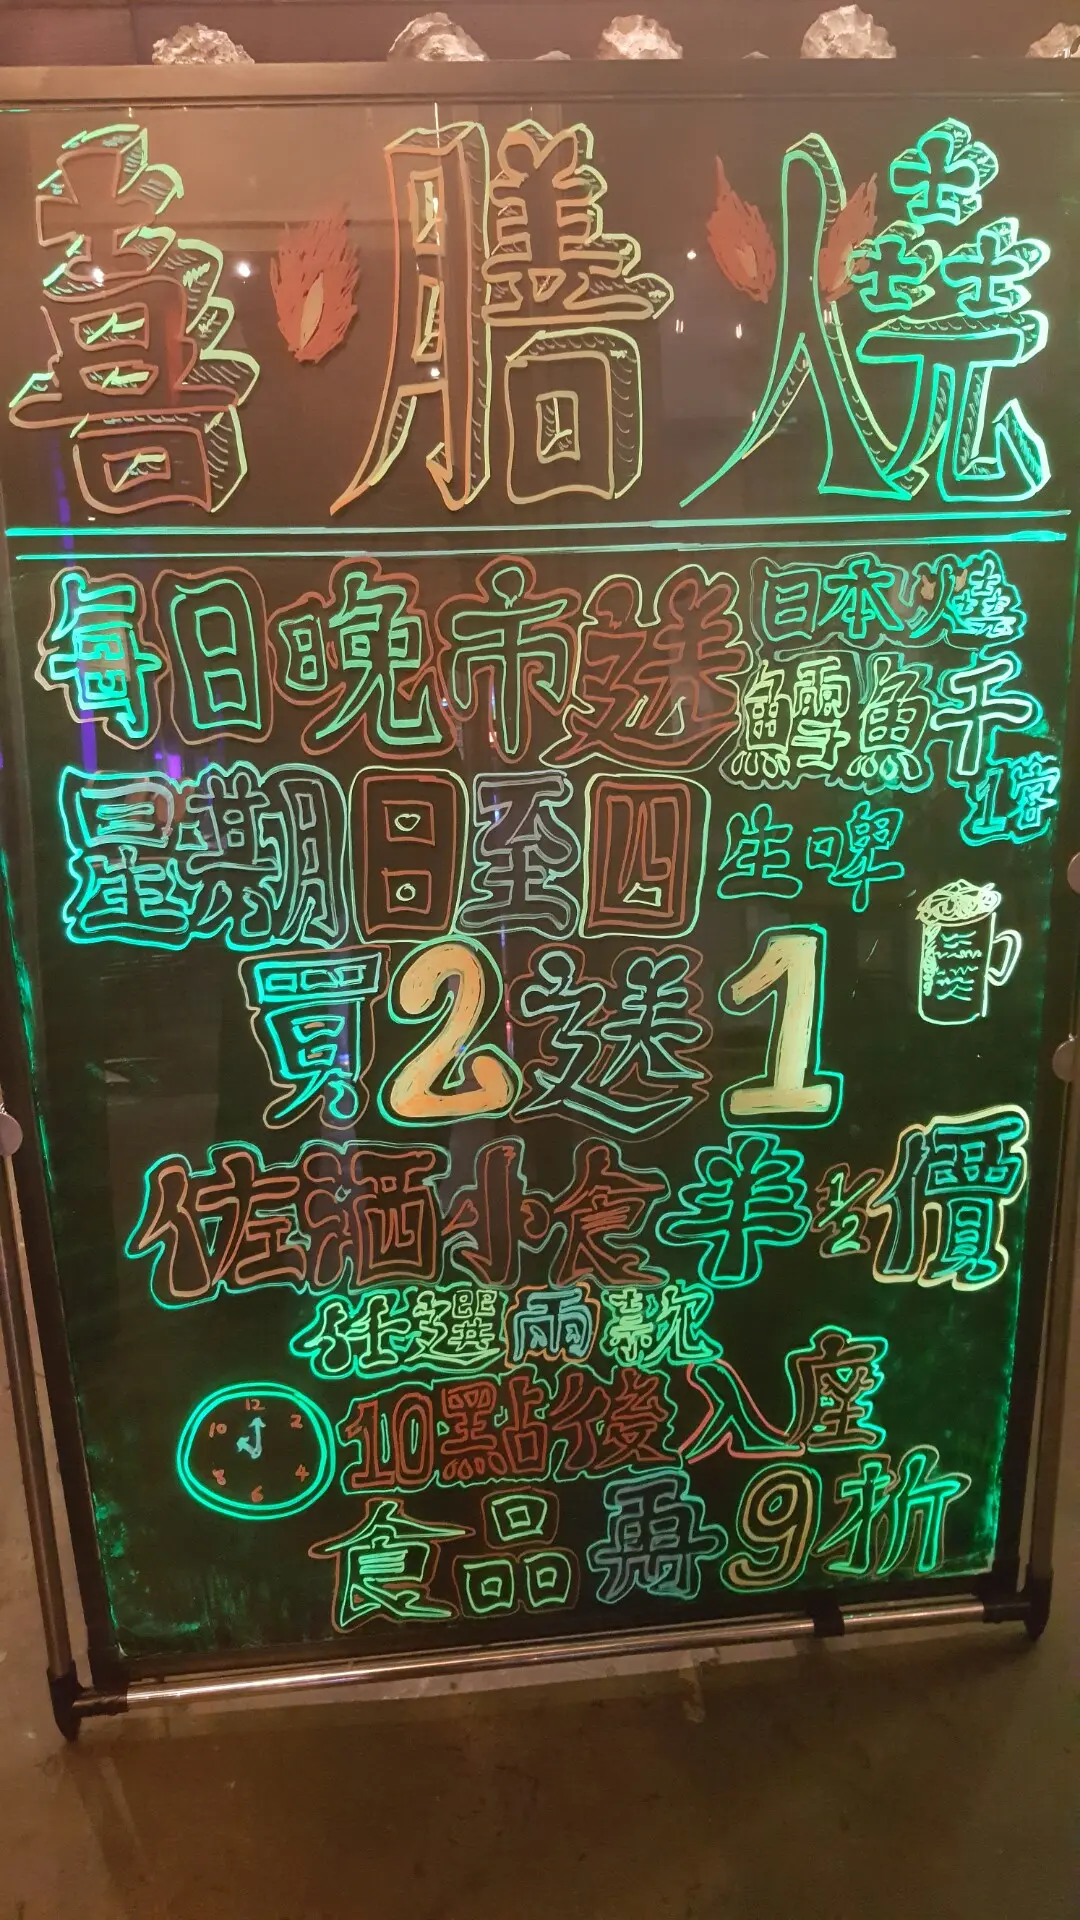 喜膳燒
每日晚市送
日本燒
鱈魚干
星期日至四
生啤
買2送1
佐酒小食半½價
任選兩款
10點後入座
12
10 2
8 4
6
食品再9折